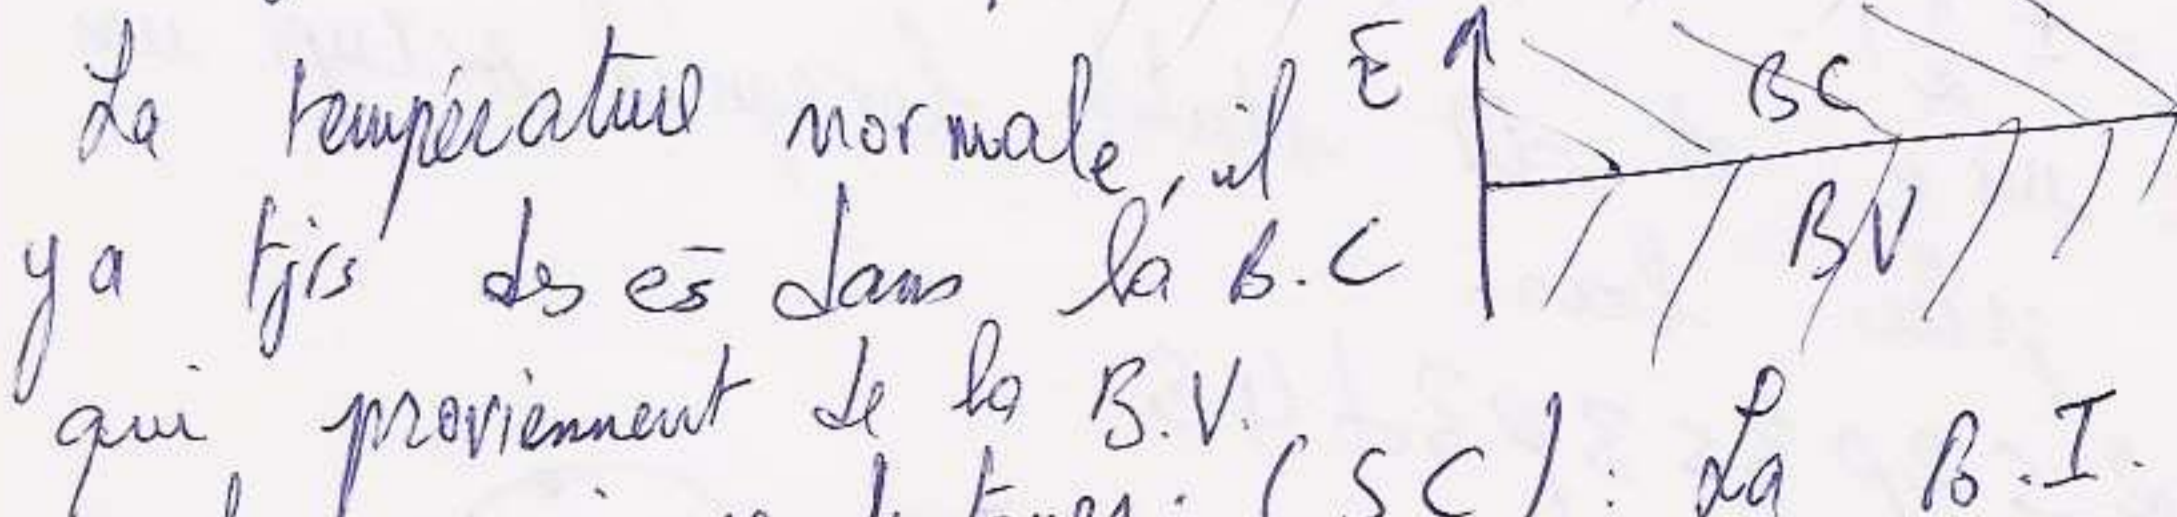 La température normale, il
y a tjrs des es̄ dans la B.C
qui proviennent de la B.V.
(SC) : La B.I.
E
BC
BV